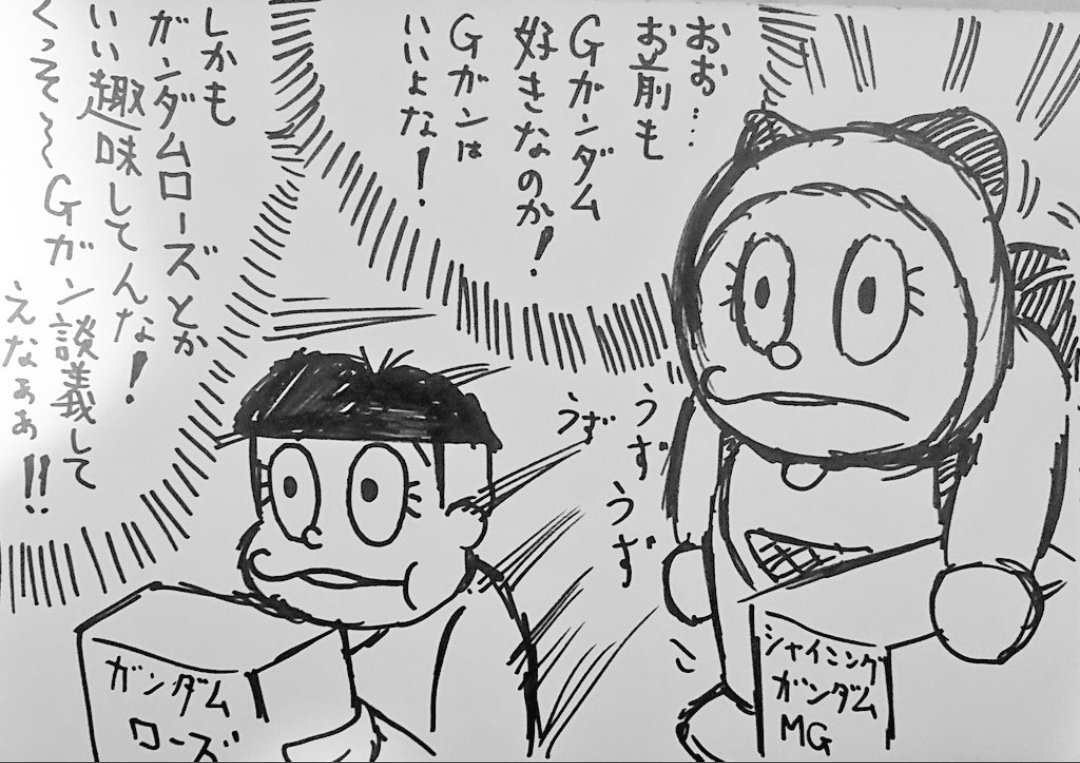 おお…
お前も
Gガンダム
好きなのか！
Gガンは
いいよな！
しかも
ガンダムローズとか
いい趣味してんな！
くっそ〜Gガン談義して
えなぁぁ!!
うず
うず
うず
シャイニング
ガンダム
MG
ガンダム
ローズ